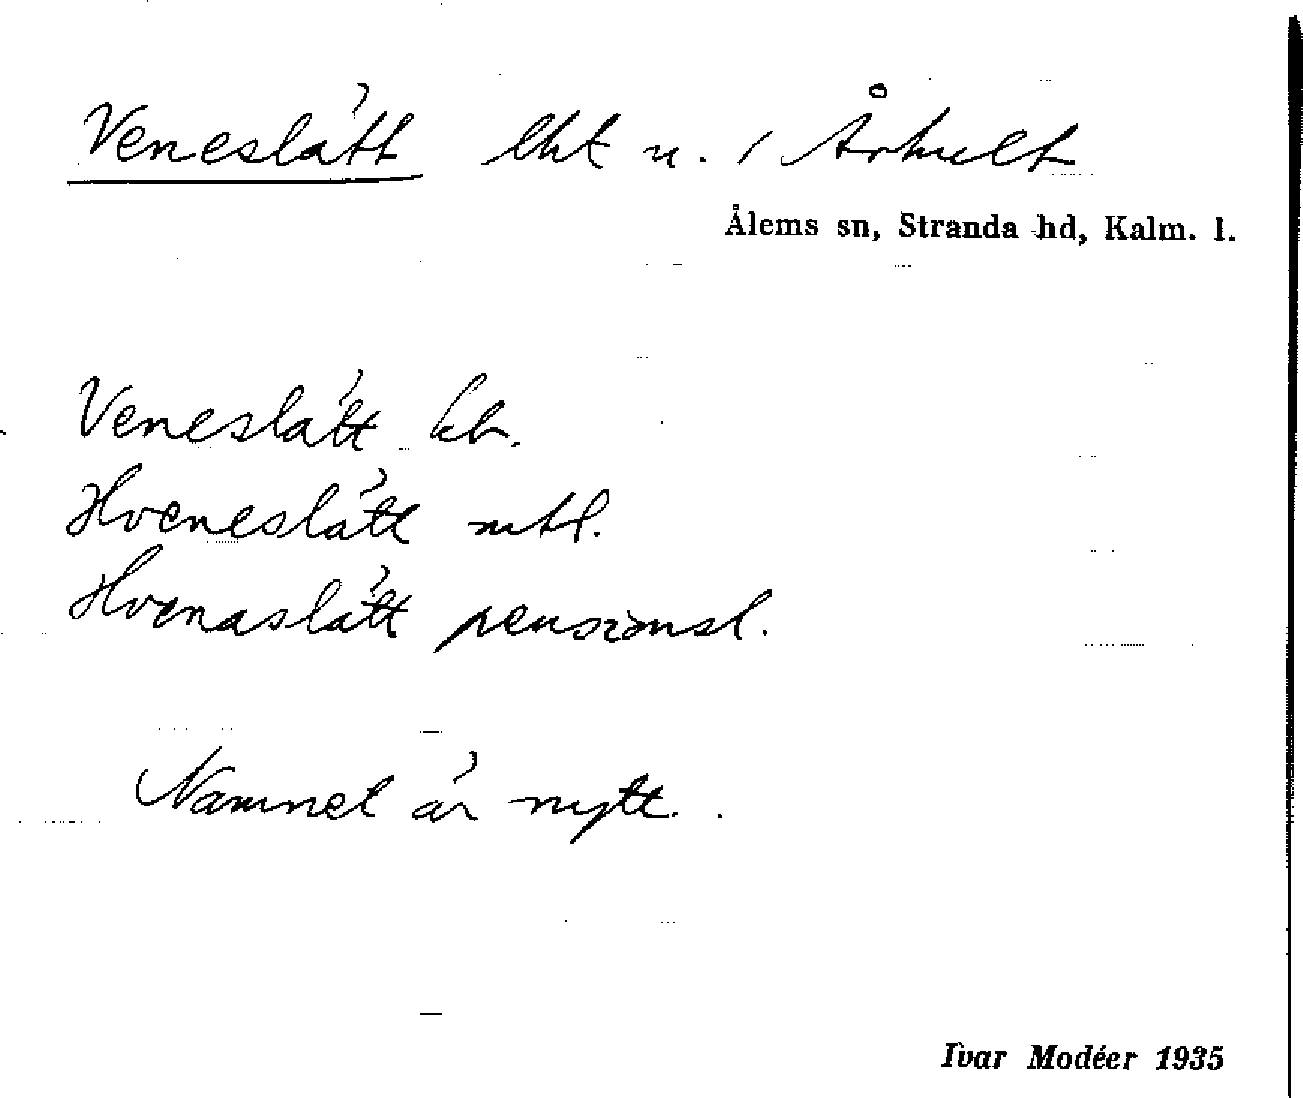 Veneslätt lht u. / Århult
Ålems sn, Stranda hd, Kalm. l.
Veneslätt kb.
Hveneslätt mtl.
Hvenaslätt pensionsl.
Namnet är nytt.
Ivar Modéer 1935